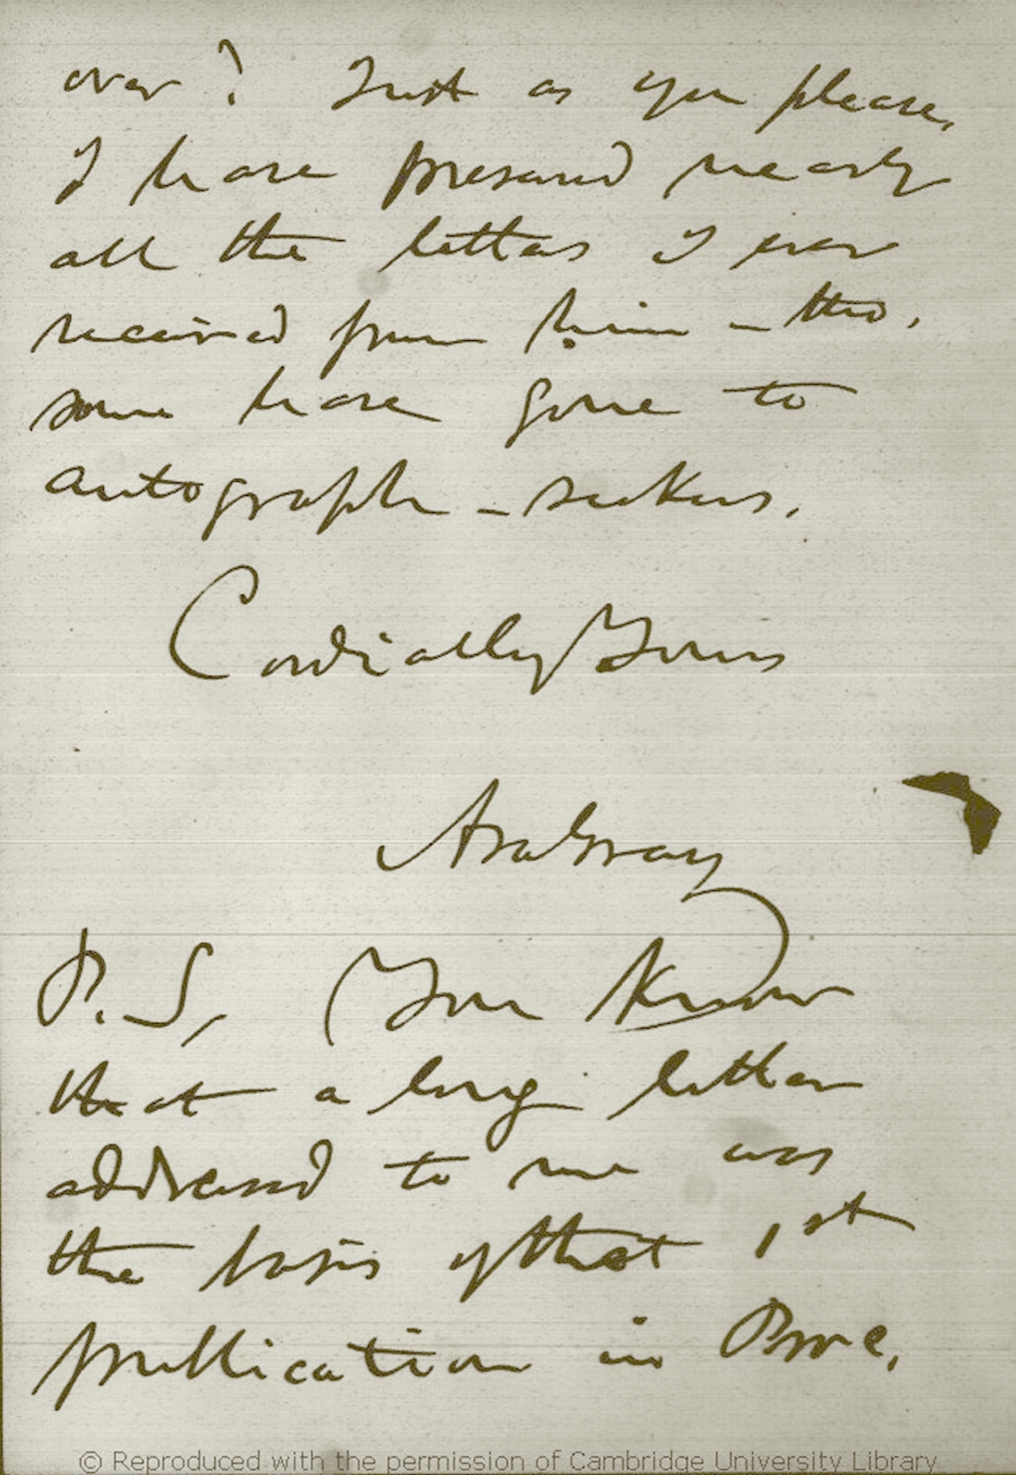 over? Just as you please.
I have preserved nearly
all the letters I ever
received from him – tho.
some have gone to
autograph-seekers.
Cordially Yours
Asa Gray
P.S. You know
that a long letter
addressed to me was
the basis of that 1st
publication in Proc.
© Reproduced with the permission of Cambridge University Library